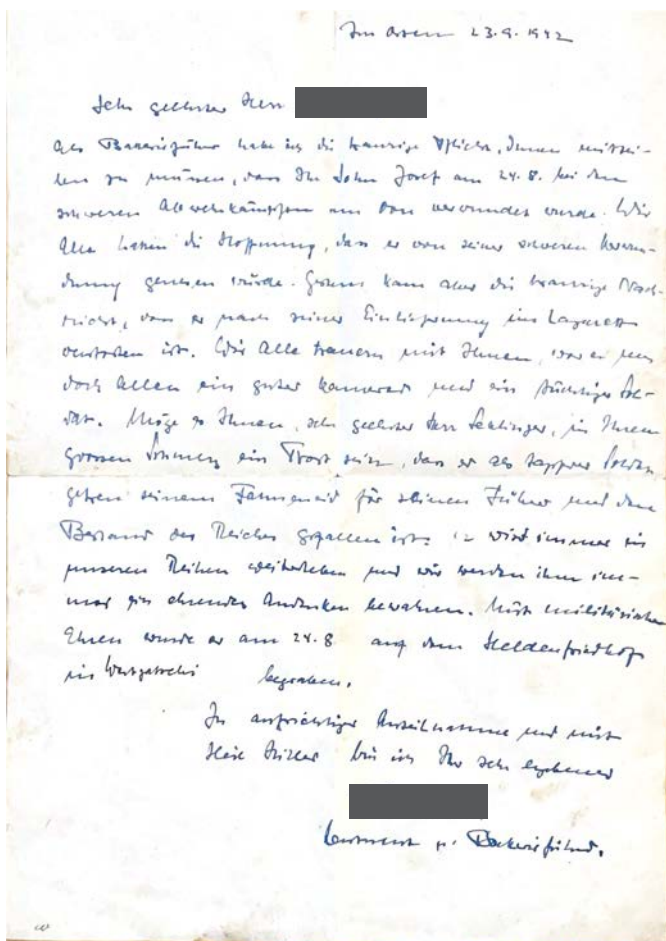 Im Osten 23.9.1942
Sehr geehrter Herr
Als Batterieführer habe ich die traurige Pflicht, Ihnen mittei-
len zu müssen, dass Ihr Sohn Josef am 24.8. bei den
schweren Abwehrkämpfen am Don verwundet wurde. Wir
Alle hatten die Hoffnung, dass er von seiner schweren Verwun-
dung genesen würde. Gestern kam aber die traurige Nach-
richt, dass er nach seiner Einlieferung ins Lazarett
verstorben ist. Wir Alle trauern mit Ihnen, war er uns
doch Allen ein guter Kamerad und ein tüchtiger Sol-
dat. Möge es Ihnen, sehr geehrter Herr, in Ihrem
grossen Schmerz ein Trost sein, dass er als tapferer Soldat
getreu seinem Fahneneid für seinen Führer und den
Bestand des Reiches gefallen ist. Er wird immer in
unseren Reihen weiterleben und wir werden ihm im-
mer ein ehrendes Andenken bewahren. Mit militärischen
Ehren wurde er am 24.8 auf dem Heldenfriedhof
in begraben.
In aufrichtiger Anteilnahme und mit
Heil Hitler bin ich Ihr sehr ergebener
Leutnant u. Batterieführer.